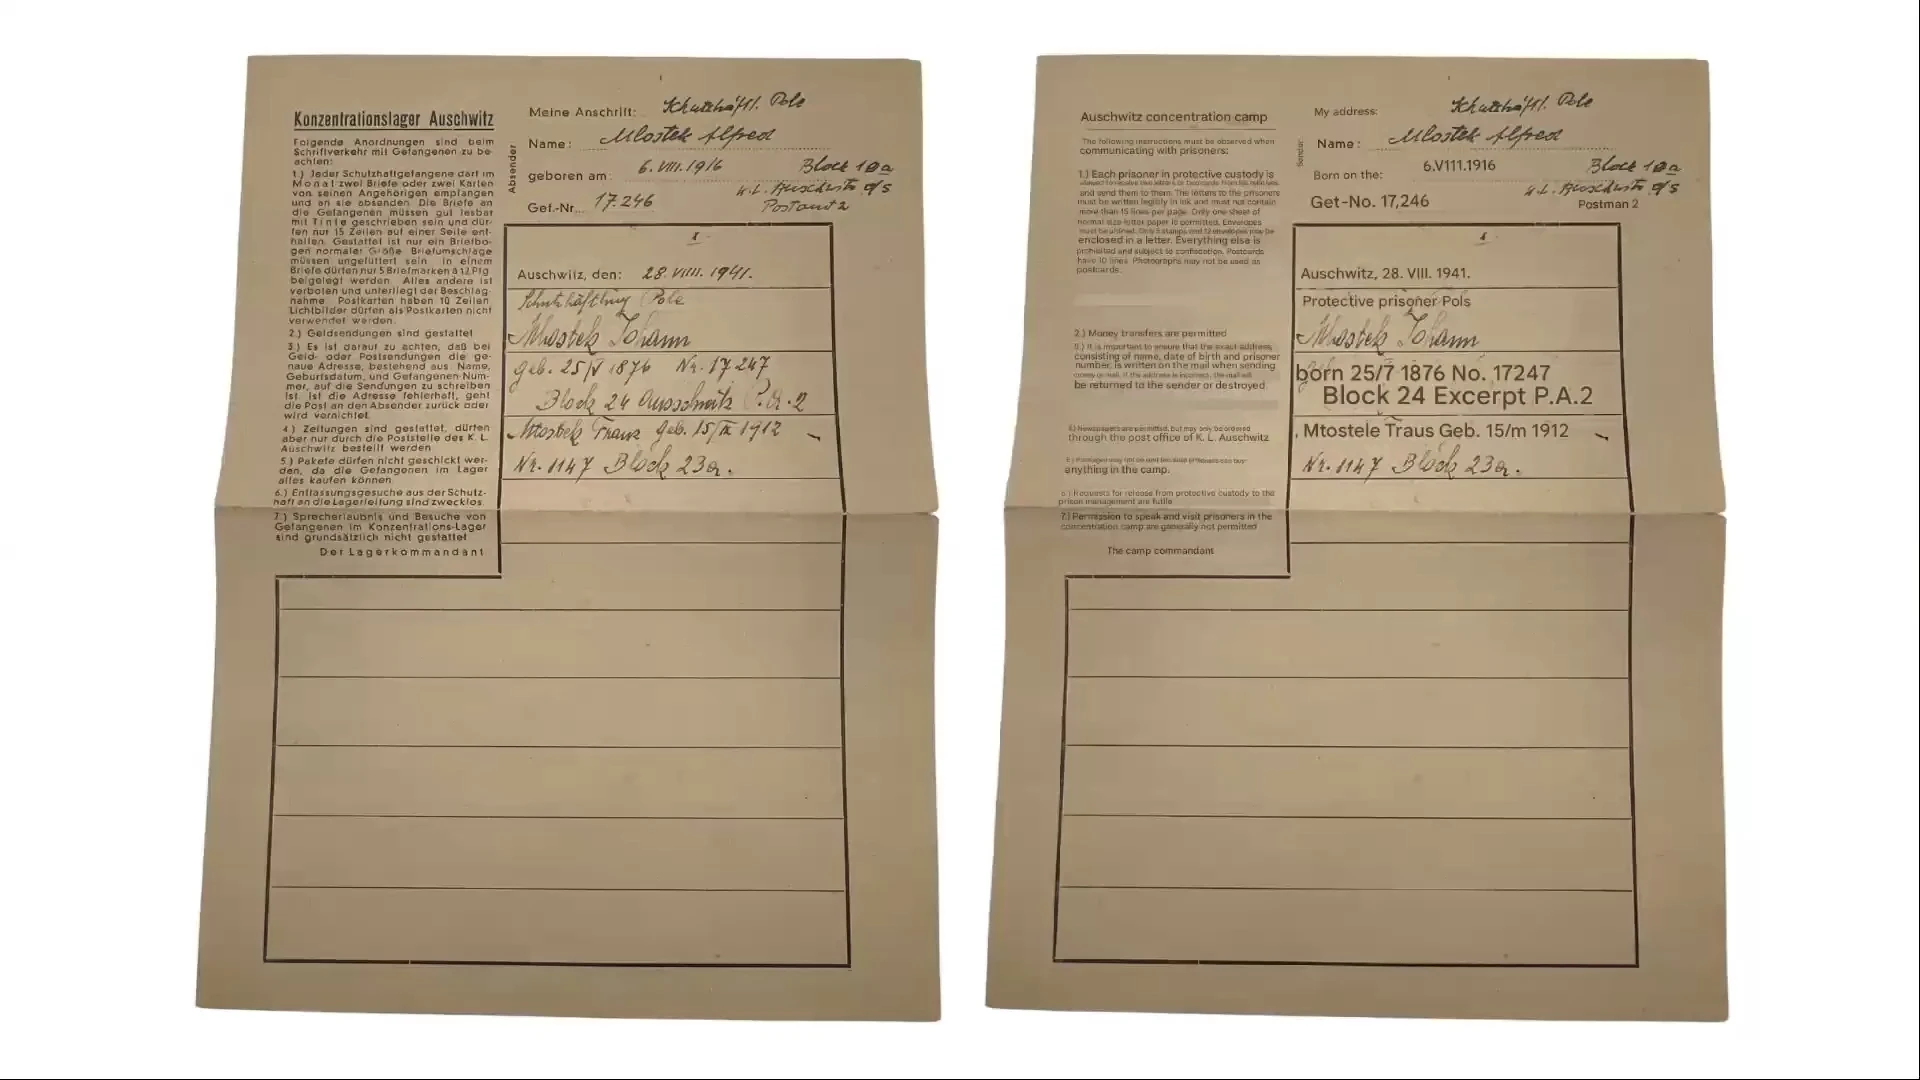 Konzentrationslager Auschwitz
Folgende Anordnungen sind beim
Schriftverkehr mit Gefangenen zu be-
achten:
1.) Jeder Schutzhaftgefangene darf im
Monat zwei Briefe oder zwei Karten
von seinen Angehörigen empfangen
und an sie absenden. Die Briefe an
die Gefangenen müssen gut lesbar
mit Tinte geschrieben sein und dür-
fen nur 15 Zeilen auf einer Seite ent-
halten. Gestattet ist nur ein Briefbo-
gen normaler Größe. Briefumschläge
müssen ungefüttert sein. In einem
Briefe dürfen nur 5 Briefmarken à 12 Pfg.
beigelegt werden. Alles andere ist
verboten und unterliegt der Beschlag-
nahme. Postkarten haben 10 Zeilen.
Lichtbilder dürfen als Postkarten nicht
verwendet werden.
2.) Geldsendungen sind gestattet
3.) Es ist darauf zu achten, daß bei
Geld- oder Postsendungen die ge-
naue Adresse, bestehend aus: Name,
Geburtsdatum, und Gefangenen-Num-
mer, auf die Sendungen zu schreiben
ist. Ist die Adresse fehlerhaft, geht
die Post an den Absender zurück oder
wird vernichtet.
4.) Zeitungen sind gestattet, dürfen
aber nur durch die Poststelle des K. L.
Auschwitz bestellt werden
5.) Pakete dürfen nicht geschickt wer-
den, da die Gefangenen im Lager
alles kaufen können.
6.) Entlassungsgesuche aus der Schutz-
haft an die Lagerleitung sind zwecklos.
7.) Sprecherlaubnis und Besuche von
Gefangenen im Konzentrations-Lager
sind grundsätzlich nicht gestattet
Der Lagerkommandant
Absender
Meine Anschrift: Schutzhäftl. Pole
Name: Mlostek Alfred
geboren am: 6.VIII.1916 Block 10a
K.L. Auschwitz O/S
Gef.-Nr... 17.246 Postamt 2
I
Auschwitz, den: 28.VIII. 1941.
Schutzhäftling Pole
Mlostek Johann
geb. 25/V 1876 Nr. 17247
Block 24 Auschwitz P.A.2
Mlostek Franz geb. 15/IX 1912
Nr. 1147 Block 23a.
Auschwitz concentration camp
The following instructions must be observed when
communicating with prisoners:
1.) Each prisoner in protective custody is
allowed to receive two letters or two cards from his relatives
and send them to them. The letters to the prisoners
must be written legibly in ink and must not contain
more than 15 lines per page. Only one sheet of
normal size letter paper is permitted. Envelopes
must be unlined. Only 5 stamps and 12 envelopes may be
enclosed in a letter. Everything else is
prohibited and subject to confiscation. Postcards
have 10 lines. Photographs may not be used as
postcards.
2.) Money transfers are permitted
It is important to ensure that the exact address,
consisting of name, date of birth and prisoner
number, is written on the mail when sending
money or mail. If the address is incorrect, the mail will
be returned to the sender or destroyed.
Newspapers are permitted, but may only be ordered
through the post office of K. L. Auschwitz
Packages may not be sent because prisoners can buy
anything in the camp.
6.) Requests for release from protective custody to the
prison management are futile
7.) Permission to speak and visit prisoners in the
concentration camp are generally not permitted
The camp commandant
Sender:
My address: Schutzhäftl. Pole
Name: Mlostek Alfred
Born on the: 6.VIII.1916 Block 10a
K.L. Auschwitz O/S
Get-No. 17,246 Postman 2
I
Auschwitz, 28. VIII. 1941.
Protective prisoner Pols
Mlostek Johann
born 25/7 1876 No. 17247
Block 24 Excerpt P.A.2
Mtostele Traus Geb. 15/m 1912
Nr. 1147 Block 23a.